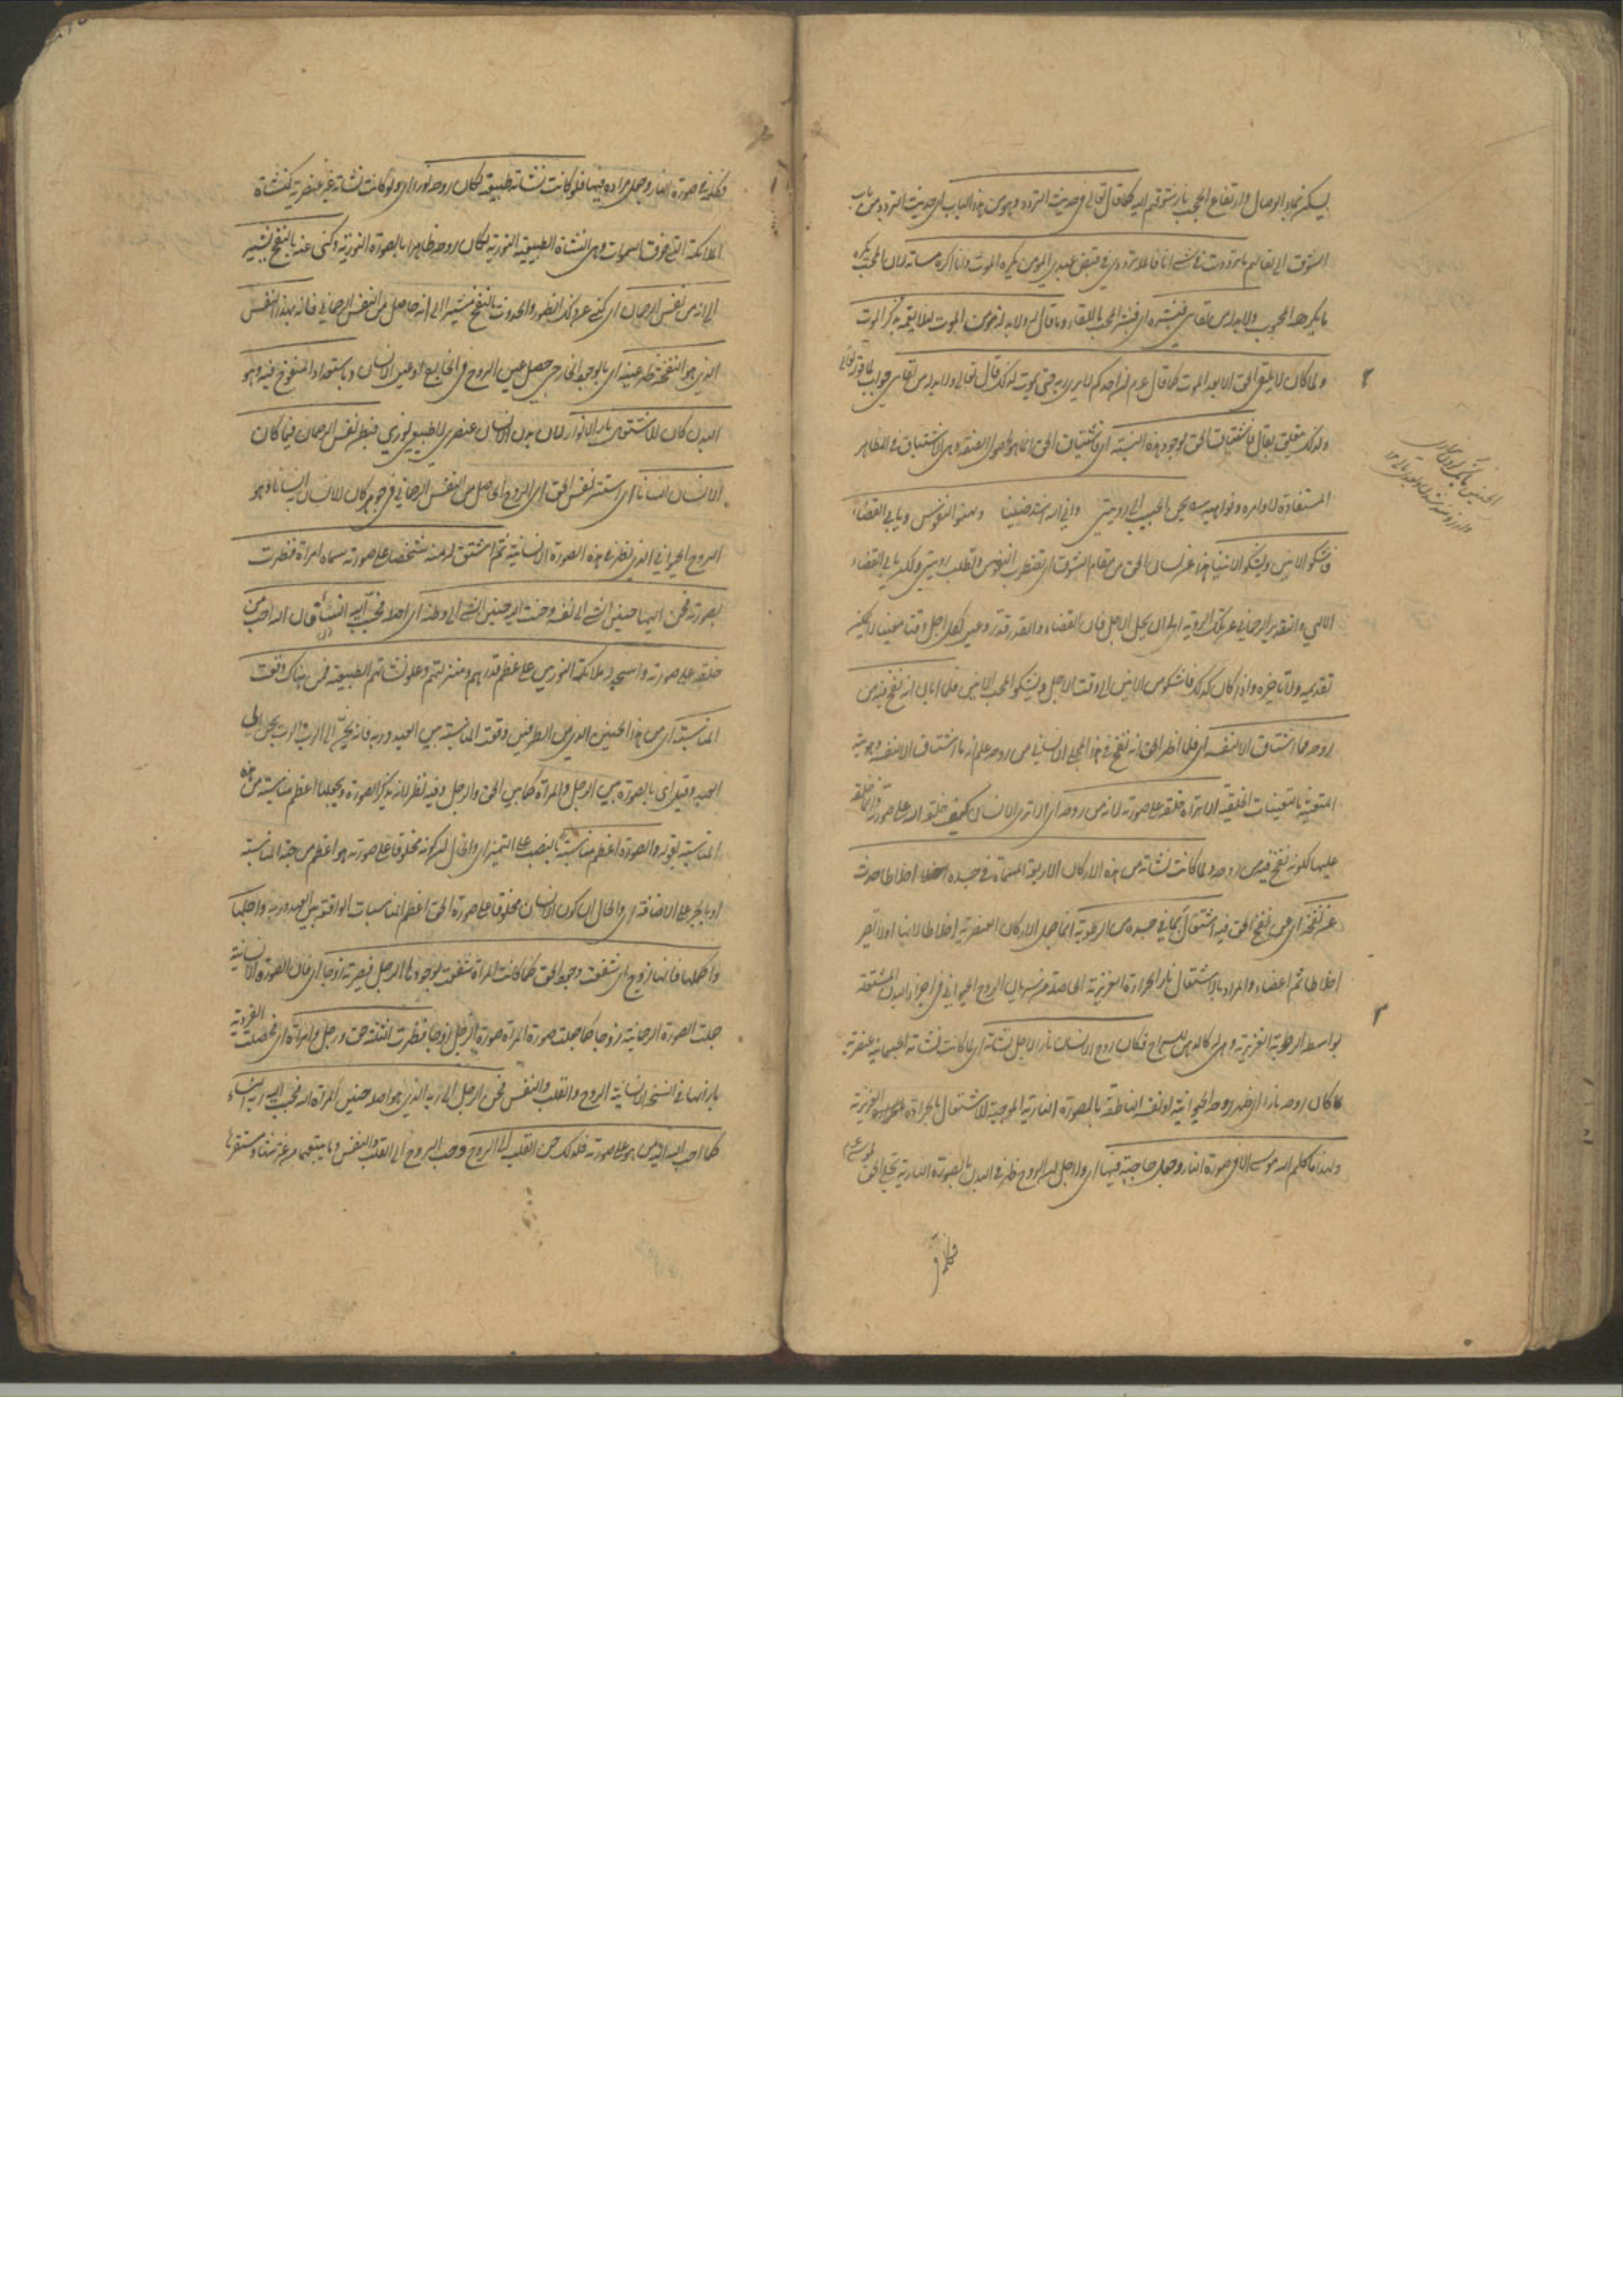 يسكن بهاء الوصال وارتفاع الحجب نار شوقهم اليه كما قال تعالى في حديث التردد وهو من هذا الباب اي حديث التردد من باب
الشوق الى لقائهم ما ترددت في شيء انا فاعله ترددي في قبض عبدي المؤمن يكره الموت وانا اكره مساته لان المحب يكره
ما يكرهه المحبوب ولا بد له من لقائي فبشره اي فبشر المحب باللقاء وما قال له ولا بد له من الموت لئلا يغمه بذكر الموت
ولما كان لا يلقى الحق الا بعد الموت كما قال عم ان احدكم لا يرى ربه حتى يموت لذلك قال تعالى ولا بد له من لقائي جواب لما قوله تعالى
ولذلك متعلق بقال فاشتياق الحق لوجود هذه النسبة اي فاشتياق الحق انما هو لحصول الصفة وهي الاشتياق في المظاهر
يحن الحبيب الى رؤيتي واني اليه اشد حنينا وتهفو النفوس ويأبى القضا
فاشكو الانين ويشكو الانينا هذا عن لسان الحق من مقام الشوق اي تضطرب النفوس وتطلب رؤيتي ولكن يأبى القضاء
الالهي والتقدير الرحماني عن تلك الرؤية الى ان يحل الاجل فان القضاء والقدر قدر وعين لكل اجل وقتا معينا لا يمكن
تقديمه ولا تأخيره واذا كان كذلك فاشكو من الانين الى وقت الاجل ويشكو المحب الانين فلما ابان انه نفخ فيه من
روحه فما اشتاق الا لنفسه اي فلما اظهر الحق انه نفخ في هذا المجلى الانساني من روحه علم انه ما اشتاق الا لنفسه وهويته
المتعينة بالتعينات الخلقية الا تراه خلقه على صورته لانه من روحه اي الا ترى الانسان كيف خلقه الله على صورته وانما خلقه
عليها لكونه نفخ فيه من روحه ولما كانت نشأته من هذه الاركان الاربعة المسماة في جسده اخلاطا حدث
عن نفخه اي عن نفخ الحق فيه اشتعال بما في جسده من الرطوبة انما جعل الاركان العنصرية اخلاطا لانها اولا تصير
اخلاطا ثم اعضاء والمراد بالاشتعال نار الحرارة الغريزية الحاصلة من سريان الروح الحيواني في اجزاء البدن المشتعلة
بواسطة الرطوبة الغريزية وهي له كالدهن للسراج فكان روح الانسان نارا لاجل نشأته اي لما كانت نشأته الجسمانية عنصرية
كان روحه نارا اي ظهر روحه الحيوانية او نفسه الناطقة بالصورة النارية الموجبة للاشتعال بالحرارة الغريزية
ولهذا ما كلم الله موسى الا في صورة النار وجعل حاجته فيها اي ولاجل ان الروح ظهر في البدن بالصورة النارية تجلى الحق لموسى عم
فكلمه في صورة النار وجعل مراده فيها فلو كانت نشأته طبيعية لكان روحه نورا اي ولو كانت نشأته غير عنصرية كنشأة
الملائكة التي فوق السموات وهي النشأة الطبيعية النورية لكان روحه ظاهرا بالصورة النورية وكنى عنه بالنفخ يشير
الى انه من نفس الرحمان اي كنى عن ذلك الظهور والحدوث بالنفخ مشيرا الى انه حاصل من النفس الرحماني فانه بهذا النفس
الذي هو النفخة ظهر عينه اي بالوجود الخارجي حصل عين الروح في الخارج او عين الانسان وباستعداد المنفوخ فيه وهو
البدن كان الاشتعال نارا لا نورا لان بدن الانسان عنصري لا طبيعي نوري فبطن نفس الرحمان فيما كان
الانسان انسانا اي استتر نفس الحق اي الروح الحاصل من النفس الرحماني في جوهر كان الانسان انسانا وهو
الروح الحيواني الذي ظهر في هذه الصورة الانسانية ثم اشتق له منه شخصا على صورته سماه امرأة فظهرت
بصورته فحن اليها حنين الشيء الى نفسه وحنت اليه حنين الشيء الى وطنه فحبب اليه النساء فان الله احب من
خلقه على صورته واسجد له ملائكته النوريين على عظم قدرهم ومنزلتهم وعلو نشأتهم الطبيعية فمن هناك وقعت
المناسبة اي من هذا الحنين الذي من الطرفين وقعت المناسبة بين العبد وربه فانه يحن الى الرب والرب يحن الى
العبد وقيل اي بالصورة بين الرجل والمرأة كما بين الحق والرجل وفيه نظر لانه يذكر الصورة ويجعلها اعظم مناسبة من هذه
المناسبة بقوله والصورة اعظم مناسبة بالنصب على التمييز اي والحال ان كونه مخلوقا على صورته هو اعظم من جهة المناسبة
او بالجر على الاضافة اي والحال ان كون الانسان مخلوقا على صورة الحق اعظم المناسبات الواقعة بين العبد وربه واجلها
واكملها فانها زوج اي شفعت وجود الحق كما كانت المرأة شفعت بوجودها الرجل فصيرته زوجا اي فان الصورة الانسانية
جعلت الصورة الرحمانية زوجا كما جعلت صورة المرأة صورة الرجل زوجا فظهرت الثلثة حق ورجل وامرأة اي فحصلت الفردية
بازائها في النسخة الانسانية الروح والقلب والنفس فحن الرجل الى ربه الذي هو اصله حنين المرأة اليه فحبب اليه ربه النساء
كما احب الله من هو على صورته فلذلك حن القلب الى الروح وحن الروح الى القلب والنفس وما يتبعهما من عرشها ومستقرها